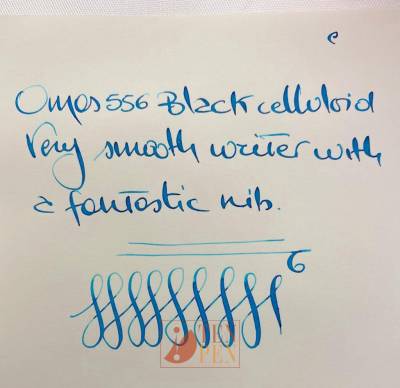 Omas 556 Black celluloid
Very smooth writer with
a fantastic nib.
6